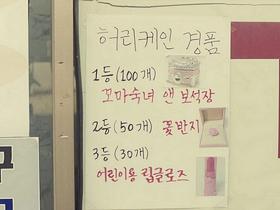 허리케인 경품
1등 (100개)
꼬마숙녀 앤 보석장
2등 (50개) 꽃반지
3등 (30개)
어린이용 립글로즈
구